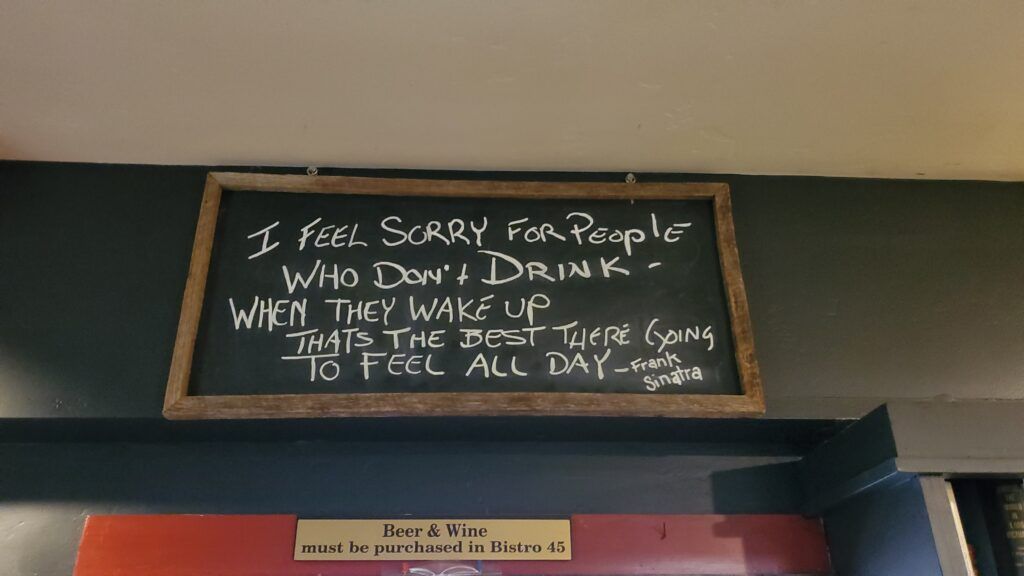 I FEEL SORRY FOR PeoplE
WHO DON't DRINK -
WHEN THEY WAKE UP
THATS THE BEST THERE GOING
TO FEEL ALL DAY - Frank
Sinatra
Beer & Wine
must be purchased in Bistro 45